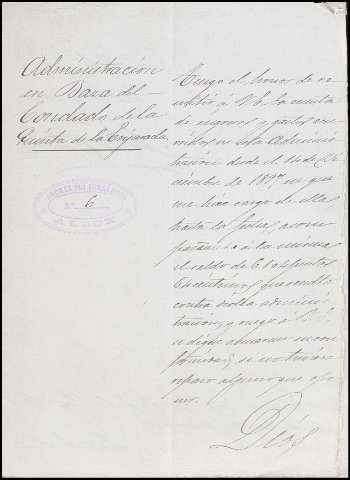 Administración
en Baza del
Condado de la
Quinta de la Enjarada
Nº 6
Tengo el honor de re-
mitir á V. la cuenta
de ingresos y gastos ocu-
rridos en esta Adminis-
tración desde el 14 de Di-
ciembre de 189 en que
me hice cargo de ella
hasta la fecha, acom-
pañando á la misma
el saldo de 6.104 pesetas
céntimos que resulta
contra dicha adminis-
tración, y ruego á V. S.
se digne abonarme su con-
formidad, si no tuviere
reparo alguno que opo-
ner.
Dios